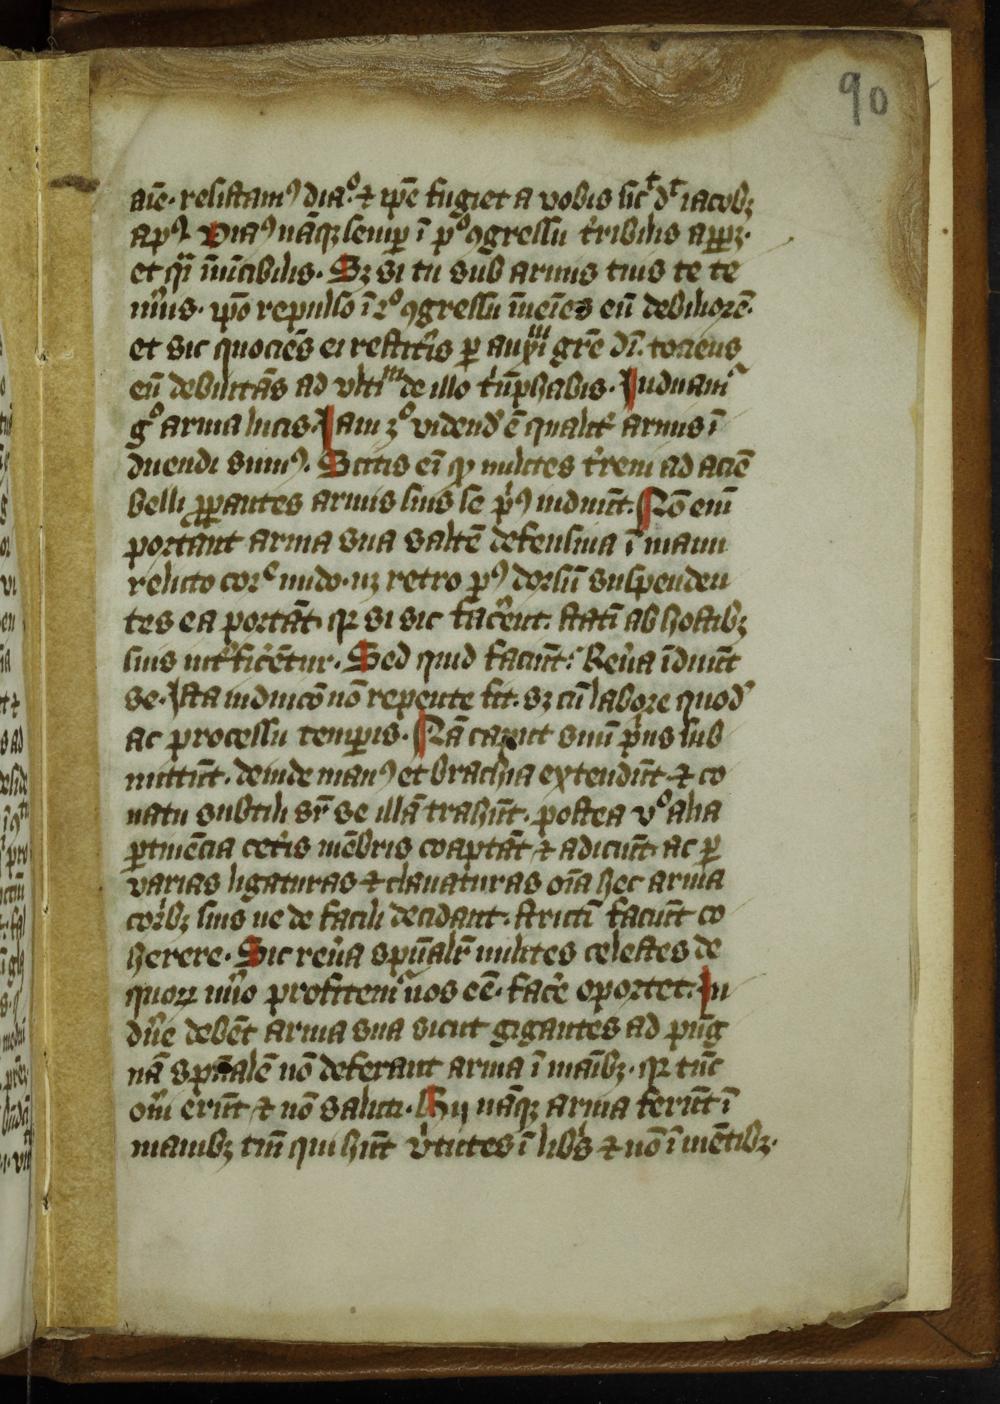 90
aīe · resistamꝰ dia° · ⁊ ip̄e fugiet a vobis sicᵗ dᵗ iacobꝫ
apꝰ Diaꝰ nāqꝫ semꝑ ī p° ꝯgressu t̓ribilis appꝫ ·
et q̓i īuīcibilis · Sꝫ si tu sub armis tuis te te
nūis · ip̄o repulso ī 2° ꝯgressu īueīes eū debiliorē ·
et sic quociēs ei restit̓is ꝑ auxiᵐ grē dī · tociens
eū debilitās ad vltiᵐ de illo t̓ūphabis · Induam̄
g° arma lucis · Iam 3° vidend̓ ē qualit̓ armis ī
duendi sumꝰ · Scitis eī ꝙ milites t̓reni ad aciē
belli ꝓꝑantes armis suis se p̓ꝰ induūt · Nō enī
portant arma sua saltē defensiua ī manu
relicto corᵉ nudo · nꝫ retro pꝰ dorsū suspenden
tes ea portāt · qꝛ si sic fac̓ent · statī ab hostibꝫ
suis int̓fic̓ētur · Sed quid faciūt · Reu̓a īduūt
se · Ista induicō nō repente fit · sꝫ cū labore quod̓
ac processu temꝑis · Nā caput suū p̓us sub
mittūt · deinde manꝰ et brachia extendūt · ⁊ co
natu subtili sr̄ se illā trahūt · postea v° alia
ꝑtinēcia cet̓is mēbris coaptāt ⁊ adiciūt · ac ꝑ
varias ligaturas ⁊ clauaturas oīa hec arma
cor̓ibꝫ suis ne de facili decidant · strictī faciūt co
herere · Sic reu̓a spūalr̄ milites celestes de
quoꝝ nūo profitem̄ nos eē · fac̓e oportet · In
du̓e debēt arma sua sicut gigantes ad pug
nā spūalē nō deferant arma ī maībꝫ · qꝛ tūc
on̓i erūt ⁊ nō saluti · Hij nāqꝫ arma ferūt ī
manibꝫ tm̄ qui hn̄t v̓tutes ī lib̓s ⁊ nō ī mētibꝫ ·